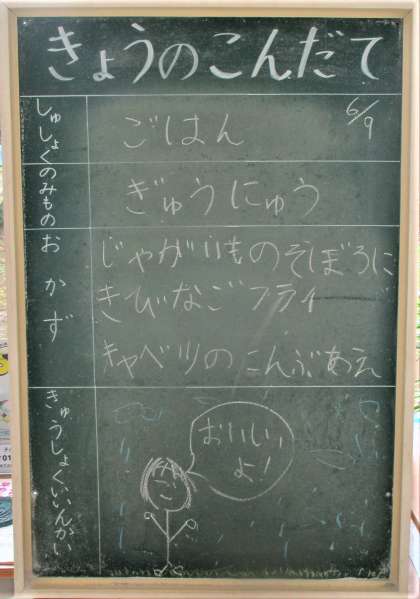 きょうのこんだて
6/9
しゅしょく
ごはん
のみもの
ぎゅうにゅう
おかず
じゃがいものそぼろに
きびなごフライ
キャベツのこんぶあえ
きゅうしょくいいんかい
おいしい
よ!